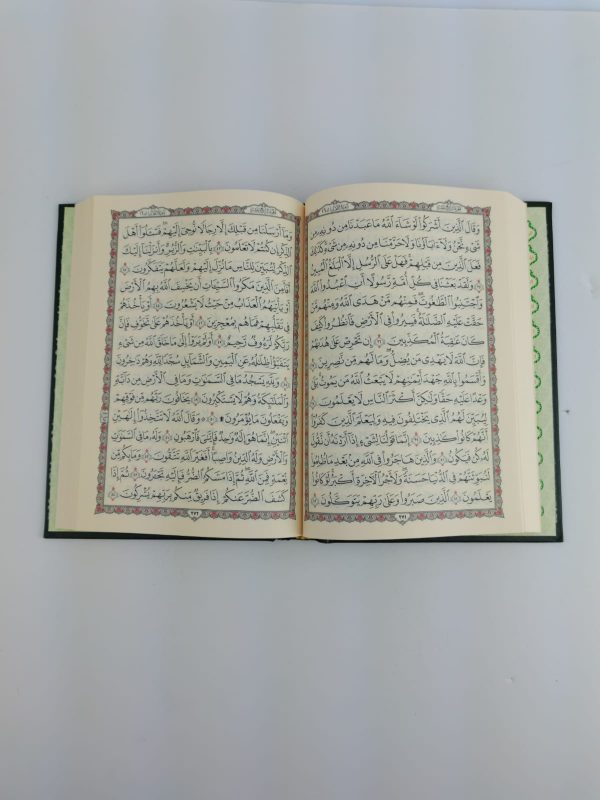 وَقَالَ ٱلَّذِينَ أَشْرَكُوا۟ لَوْ شَآءَ ٱللَّهُ مَا عَبَدْنَا مِن دُونِهِۦ مِن
شَىْءٍ نَّحْنُ وَلَآ ءَابَآؤُنَا وَلَا حَرَّمْنَا مِن دُونِهِۦ مِن شَىْءٍ كَذَٰلِكَ
فَعَلَ ٱلَّذِينَ مِن قَبْلِهِمْ فَهَلْ عَلَى ٱلرُّسُلِ إِلَّا ٱلْبَلَٰغُ ٱلْمُبِينُ
٣٥ وَلَقَدْ بَعَثْنَا فِى كُلِّ أُمَّةٍ رَّسُولًا أَنِ ٱعْبُدُوا۟ ٱللَّهَ
وَٱجْتَنِبُوا۟ ٱلطَّٰغُوتَ فَمِنْهُم مَّنْ هَدَى ٱللَّهُ وَمِنْهُم مَّنْ
حَقَّتْ عَلَيْهِ ٱلضَّلَٰلَةُ فَسِيرُوا۟ فِى ٱلْأَرْضِ فَٱنظُرُوا۟ كَيْفَ
كَانَ عَٰقِبَةُ ٱلْمُكَذِّبِينَ ٣٦ إِن تَحْرِصْ عَلَىٰ هُدَىٰهُمْ
فَإِنَّ ٱللَّهَ لَا يَهْدِى مَن يُضِلُّ وَمَا لَهُم مِّن نَّٰصِرِينَ ٣٧
وَأَقْسَمُوا۟ بِٱللَّهِ جَهْدَ أَيْمَٰنِهِمْ لَا يَبْعَثُ ٱللَّهُ مَن يَمُوتُ بَلَىٰ
وَعْدًا عَلَيْهِ حَقًّا وَلَٰكِنَّ أَكْثَرَ ٱلنَّاسِ لَا يَعْلَمُونَ ٣٨
لِيُبَيِّنَ لَهُمُ ٱلَّذِى يَخْتَلِفُونَ فِيهِ وَلِيَعْلَمَ ٱلَّذِينَ كَفَرُوٓا۟
أَنَّهُمْ كَانُوا۟ كَٰذِبِينَ ٣٩ إِنَّمَا قَوْلُنَا لِشَىْءٍ إِذَآ أَرَدْنَٰهُ أَن نَّقُولَ
لَهُۥ كُن فَيَكُونُ ٤٠ وَٱلَّذِينَ هَاجَرُوا۟ فِى ٱللَّهِ مِنۢ بَعْدِ مَا ظُلِمُوا۟
لَنُبَوِّئَنَّهُمْ فِى ٱلدُّنْيَا حَسَنَةً وَلَأَجْرُ ٱلْءَاخِرَةِ أَكْبَرُ لَوْ كَانُوا۟
يَعْلَمُونَ ٤١ ٱلَّذِينَ صَبَرُوا۟ وَعَلَىٰ رَبِّهِمْ يَتَوَكَّلُونَ ٤٢
٢٧١
وَمَآ أَرْسَلْنَا مِن قَبْلِكَ إِلَّا رِجَالًا نُّوحِىٓ إِلَيْهِمْ فَسْـَٔلُوٓا۟ أَهْلَ
ٱلذِّكْرِ إِن كُنتُمْ لَا تَعْلَمُونَ ٤٣ بِٱلْبَيِّنَٰتِ وَٱلزُّبُرِ وَأَنزَلْنَآ إِلَيْكَ
ٱلذِّكْرَ لِتُبَيِّنَ لِلنَّاسِ مَا نُزِّلَ إِلَيْهِمْ وَلَعَلَّهُمْ يَتَفَكَّرُونَ ٤٤
أَفَأَمِنَ ٱلَّذِينَ مَكَرُوا۟ ٱلسَّيِّـَٔاتِ أَن يَخْسِفَ ٱللَّهُ بِهِمُ ٱلْأَرْضَ
أَوْ يَأْتِيَهُمُ ٱلْعَذَابُ مِنْ حَيْثُ لَا يَشْعُرُونَ ٤٥ أَوْ يَأْخُذَهُمْ
فِى تَقَلُّبِهِمْ فَمَا هُم بِمُعْجِزِينَ ٤٦ أَوْ يَأْخُذَهُمْ عَلَىٰ تَخَوُّفٍ فَإِنَّ
رَبَّكُمْ لَرَءُوفٌ رَّحِيمٌ ٤٧ أَوَلَمْ يَرَوْا۟ إِلَىٰ مَا خَلَقَ ٱللَّهُ مِن شَىْءٍ
يَتَفَيَّؤُا۟ ظِلَٰلُهُۥ عَنِ ٱلْيَمِينِ وَٱلشَّمَآئِلِ سُجَّدًا لِّلَّهِ وَهُمْ دَٰخِرُونَ
٤٨ وَلِلَّهِ يَسْجُدُ مَا فِى ٱلسَّمَٰوَٰتِ وَمَا فِى ٱلْأَرْضِ مِن دَآبَّةٍ
وَٱلْمَلَٰٓئِكَةُ وَهُمْ لَا يَسْتَكْبِرُونَ ٤٩ يَخَافُونَ رَبَّهُم مِّن فَوْقِهِمْ
وَيَفْعَلُونَ مَا يُؤْمَرُونَ ۩ ٥٠ ۞ وَقَالَ ٱللَّهُ لَا تَتَّخِذُوٓا۟ إِلَٰهَيْنِ
ٱثْنَيْنِ إِنَّمَا هُوَ إِلَٰهٌ وَٰحِدٌ فَإِيَّٰىَ فَٱرْهَبُونِ ٥١ وَلَهُۥ مَا فِى ٱلسَّمَٰوَٰتِ
وَٱلْأَرْضِ وَلَهُ ٱلدِّينُ وَاصِبًا أَفَغَيْرَ ٱللَّهِ تَتَّقُونَ ٥٢ وَمَا بِكُم مِّن
نِّعْمَةٍ فَمِنَ ٱللَّهِ ثُمَّ إِذَا مَسَّكُمُ ٱلضُّرُّ فَإِلَيْهِ تَجْـَٔرُونَ ٥٣ ثُمَّ إِذَا
كَشَفَ ٱلضُّرَّ عَنكُمْ إِذَا فَرِيقٌ مِّنكُم بِرَبِّهِمْ يُشْرِكُونَ ٥٤
٢٧٢